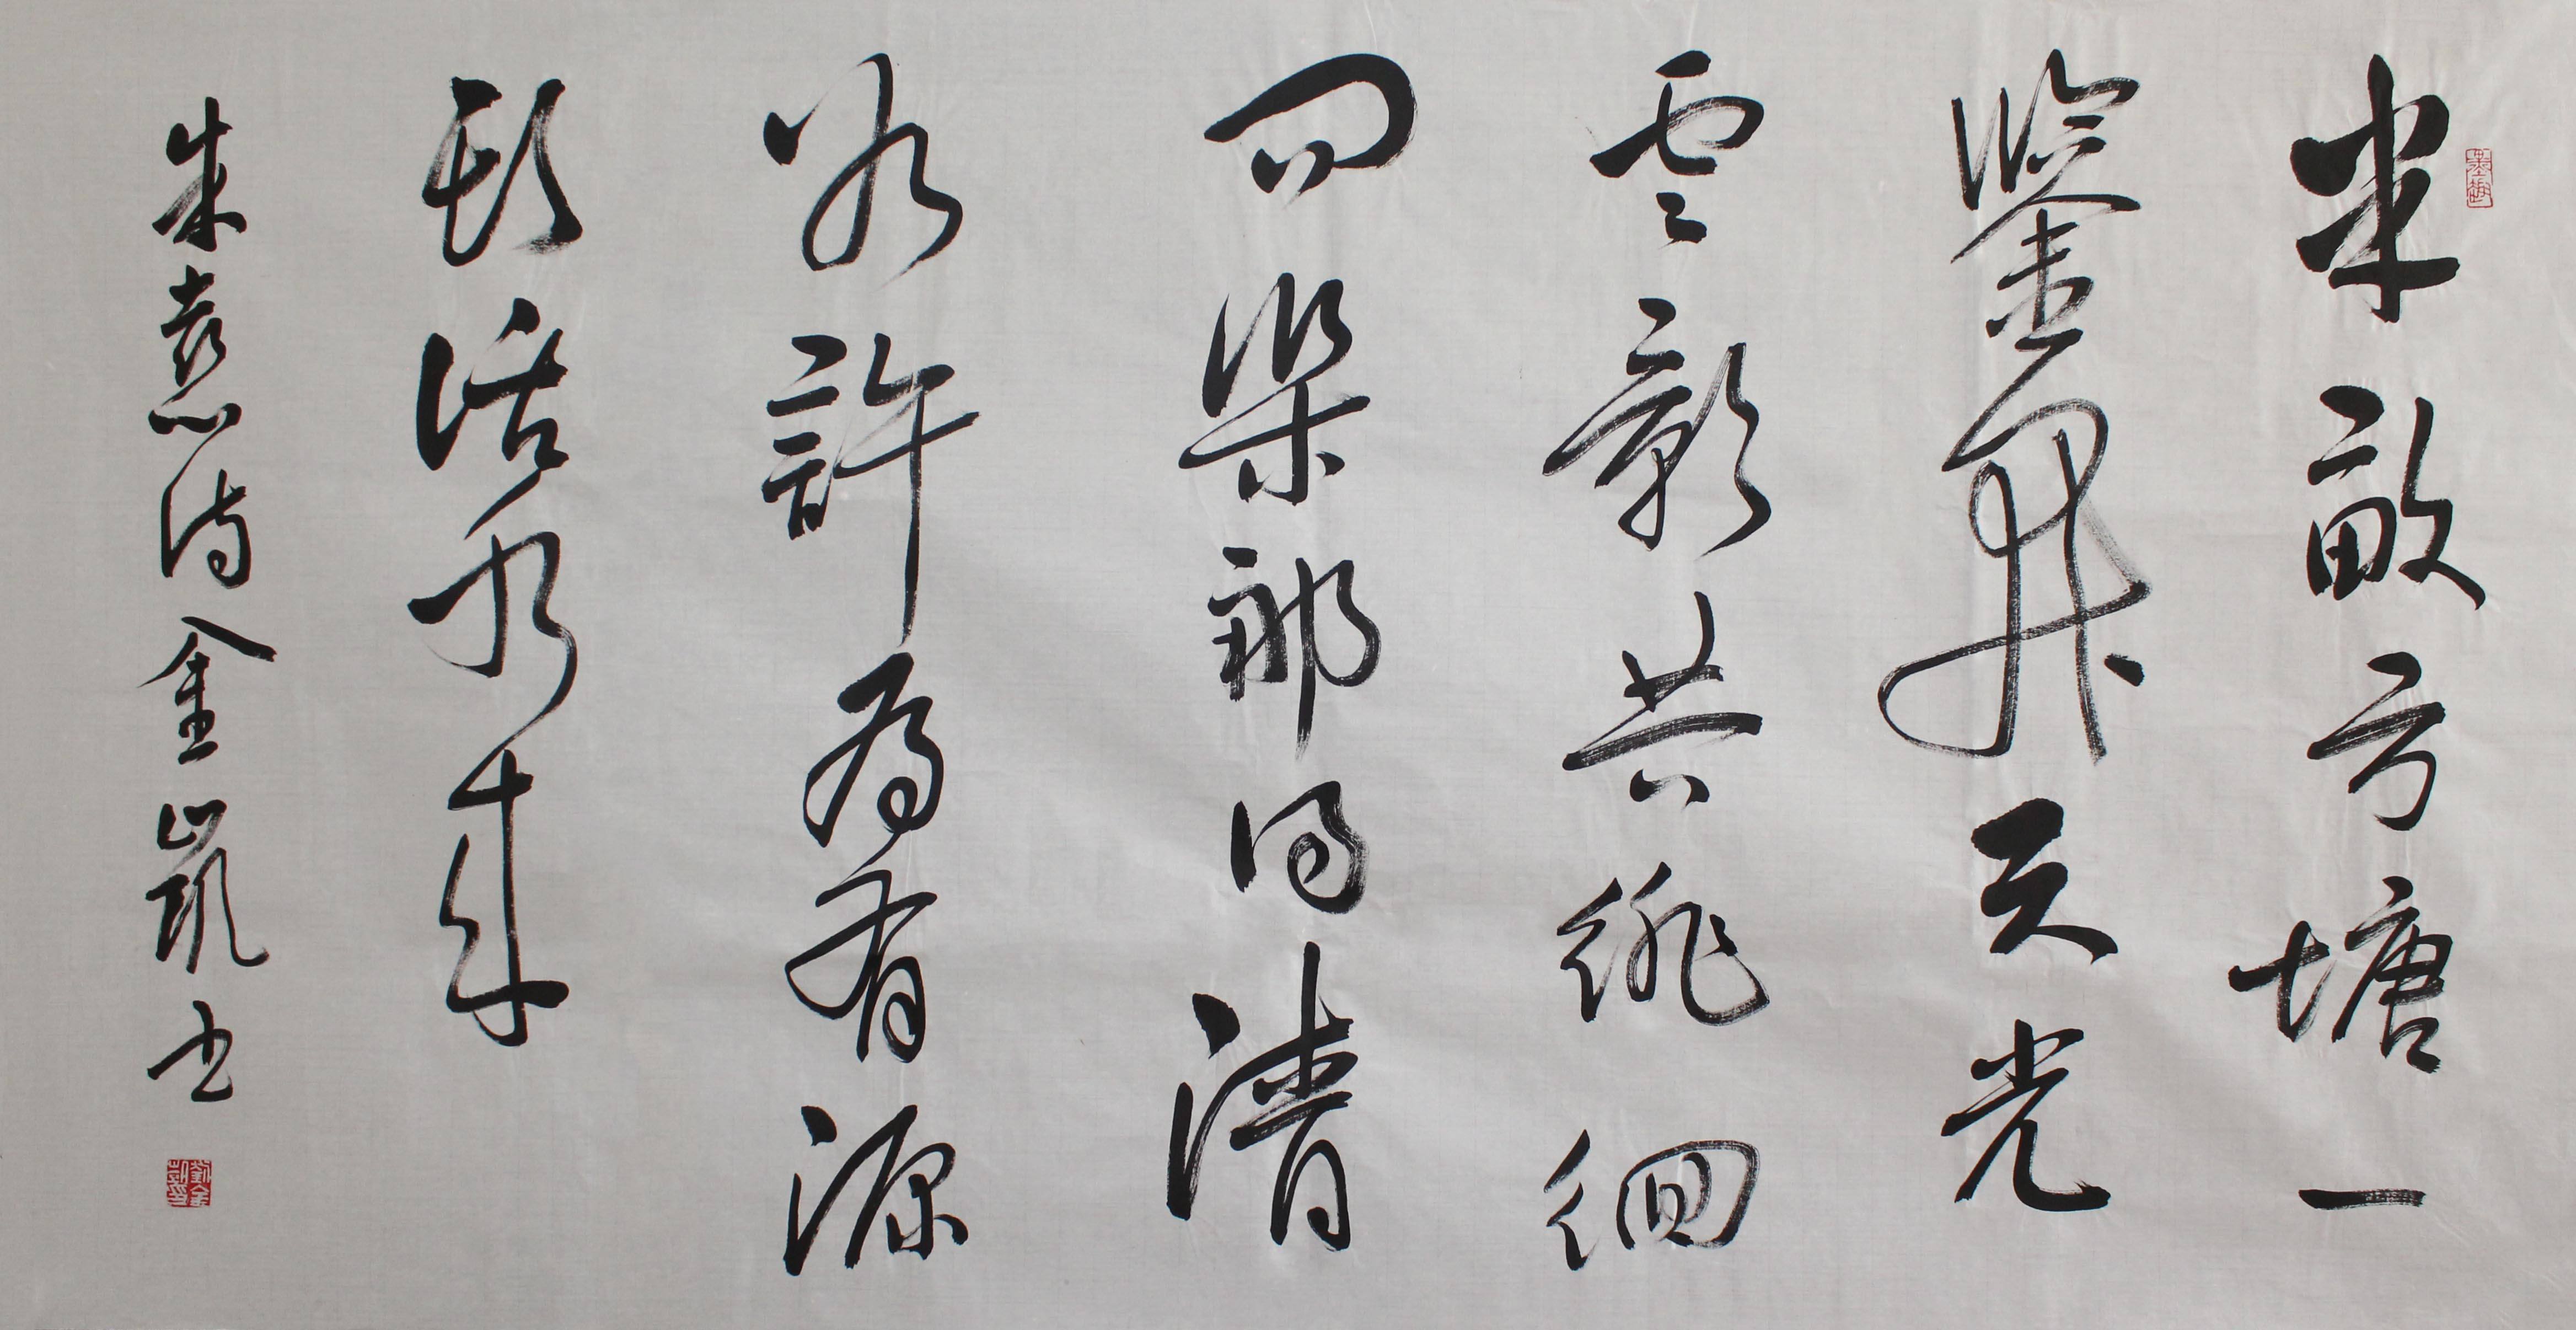 墨趣
半畝方塘一
鑒開天光
雲影共徘徊
問渠那得清
如許為有源
頭活水來
朱熹詩金凱书
劉金凱印